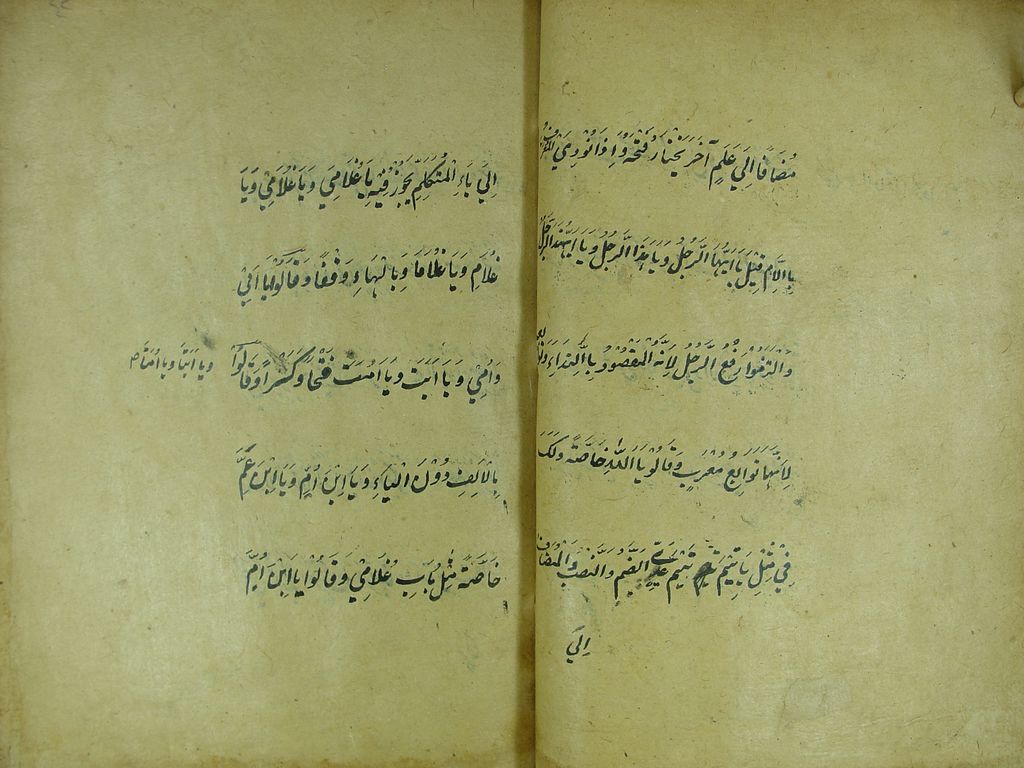 مُضَافًا إِلَى عَلَمٍ آخَرَ يُخْتَارُ فَتْحُهُ وَإِذَا نُودِيَ الْمُعَرَّفُ
بِاللَّامِ قِيلَ يَا أَيُّهَا الرَّجُلُ وَيَا هٰذَا الرَّجُلُ وَيَا أَيُّهٰذَا الرَّجُلُ
وَالْتَزَمُوا رَفْعَ الرَّجُلِ لِأَنَّهُ الْمَقْصُودُ بِالنِّدَاءِ
لِأَنَّهَا تَوَابِعُ مُعْرَبٍ وَقَالُوا يَا اللَّهُ خَاصَّةً وَلَكَ
فِي مِثْلِ يَا تَيْمُ تَيْمَ عَدِيٍّ الضَّمُّ وَالنَّصْبُ وَالْمُضَافُ
إِلَى
إِلَى يَاءِ الْمُتَكَلِّمِ يَجُوزُ فِيهِ يَا غُلَامِي وَيَا غُلَامِيَ وَيَا
غُلَامِ وَيَا غُلَامَا وَبِالْهَاءِ وَقْفًا وَقَالُوا يَا أَبِي
وَأُمِّي وَيَا أَبَتَ وَيَا أُمَّتَ فَتْحًا وَكَسْرًا وَقَالُوا
ويا ابتا ويا امتا صح
بِالْأَلِفِ دُونَ الْيَاءِ وَيَا ابْنَ أُمِّ وَيَا ابْنَ عَمِّ
خَاصَّةً مِثْلُ بَابِ غُلَامِي وَقَالُوا يَا ابْنَ أُمَّ